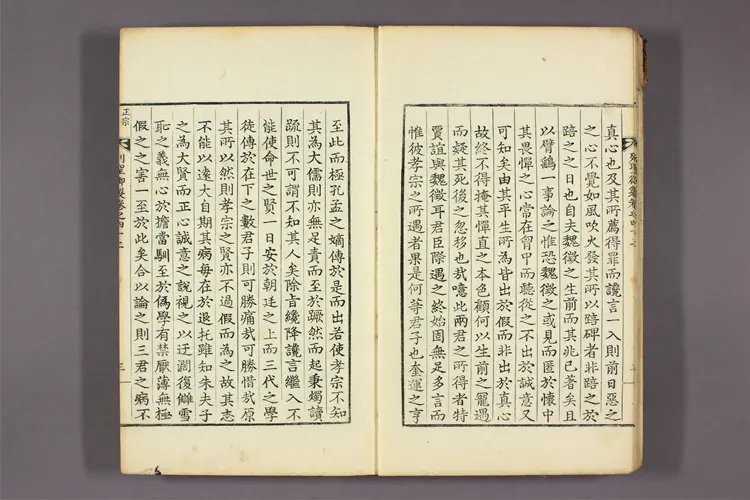 真心也及其所薦得罪而讒言一入則前日惡之
之心不覺如風吹火發其所以踣碑者非踣之於
踣之之日也自夫魏徵之生前而其兆已著矣且
以臂鷂一事論之惟恐魏徵之或見而匿於懷中
其畏憚之心當在胷中而聽從之不出於誠意又
可知矣由其平生所為皆出於假而非出於真心
故終不得掩其憚直之本色顧何以生前之寵遇
而疑其死後之忽移也哉噫此兩君之所得者特
賈誼與魏徵耳君臣際遇之終始固無足多言而
惟彼孝宗之所遇者果是何等君子也奎運之亨
至此而極孔孟之嫡傳於是而出若使孝宗不知
其為大儒則亦無足責而至於蹶然而起秉燭讀
疏則不可謂不知其人矣除旨纔降讒言繼入不
能使命世之賢一日安於朝廷之上而三代之學
徒傳於在下之數君子則可勝痛哉可勝惜哉原
其所以然則孝宗之賢亦不過假而為之故其志
不能以遠大自期其病每在於退托雖知朱夫子
之為大賢而正心誠意之說視之以迂濶復讎雪
恥之義無心於擔當馴至於偽學有禁厭薄無極
假之之害一至於此矣合以論之則三君之病不
正宗
列聖御製卷之四十二
三